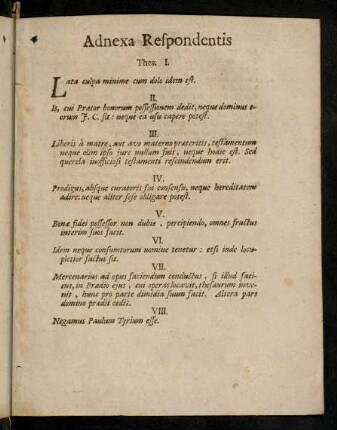 Adnexa Respondentis
Thes. I.
Lata culpa minime cum dolo idem est.
II.
Is, cui Prætor bonorum possessionem dedit, neque dominus e-
orum J. C. sit: neque ea usu capere potest.
III.
Liberis à matre, aut avo materno præteritis, testamentum
neque olim ipso jure nullum fuit, neque hodie est. Sed
querela inofficiosi testamenti rescindendum erit.
IV.
Prodigus, absque curatoris sui consensu, neque hereditatem
adire: neque aliter sese obligare potest.
V.
Bonæ fidei possessor non dubie, percipiendo, omnes fructus
interim suos facit.
VI.
Idem neque consumtorum nomine tenetur: etsi inde locu-
pletior factus sit.
VII.
Mercenarius ad opus faciendum conductus, si illud faci-
ens, in Prædio ejus, cui operas locavit, thesaurum inve-
nit, hunc pro parte dimidia suum facit. Altera pars
domino prædii cedit.
VIII.
Negamus Paulum Tyrium esse.